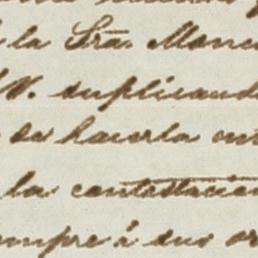 la Sra. Monc
V. suplicand
de hacerla ent
la contestacion
empre á sus or